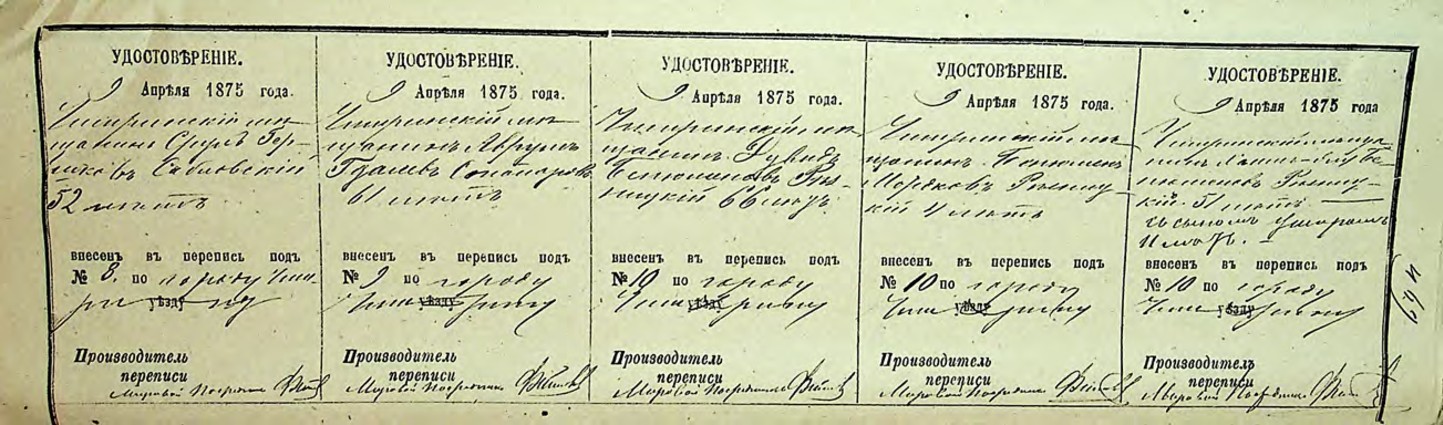 УДОСТОВѢРЕНІЕ.
9 Апрѣля 1875 года.
Чигиринскій мѣ-
щанинъ Сруль Гер-
шковъ
52 лѣтъ
внесенъ въ перепись подъ
№ 8. по городу Чиги-
ри уѣзду ну
Производитель
переписи
Мировой Посредникъ
УДОСТОВѢРЕНІЕ.
9 Апрѣля 1875 года.
Чигиринскій мѣ-
щанинъ Аврумъ
61 лѣтъ
внесенъ въ перепись подъ
№ 9 по городу
Чиги уѣзду рину
Производитель
переписи
Мировой Посредникъ
УДОСТОВѢРЕНІЕ.
9 Апрѣля 1875 года.
Чигиринскій мѣ-
щанинъ Дувидъ
Бенюменовъ Рѣз-
ницкій 66 лѣтъ
внесенъ въ перепись подъ
№ 10 по городу
Чиги уѣзду рину
Производитель
переписи
Мировой Посредникъ
УДОСТОВѢРЕНІЕ.
9 Апрѣля 1875 года.
Чигиринскій мѣ-
щанинъ Бенюменъ
Мордковъ Рѣзниц-
кій лѣтъ
внесенъ въ перепись подъ
№ 10 по городу
Чиги уѣзду рину
Производитель
переписи
Мировой Посредникъ
УДОСТОВѢРЕНІЕ.
9 Апрѣля 1875 года
Чигиринскій мѣща-
нинъ Бе-
нюменовъ Рѣзниц-
кій 51 лѣтъ
съ сыномъ
11 лѣтъ.
внесенъ въ перепись подъ
№ 10 по городу
Чиги уѣзду рину
Производитель
переписи
Мировой Посредникъ